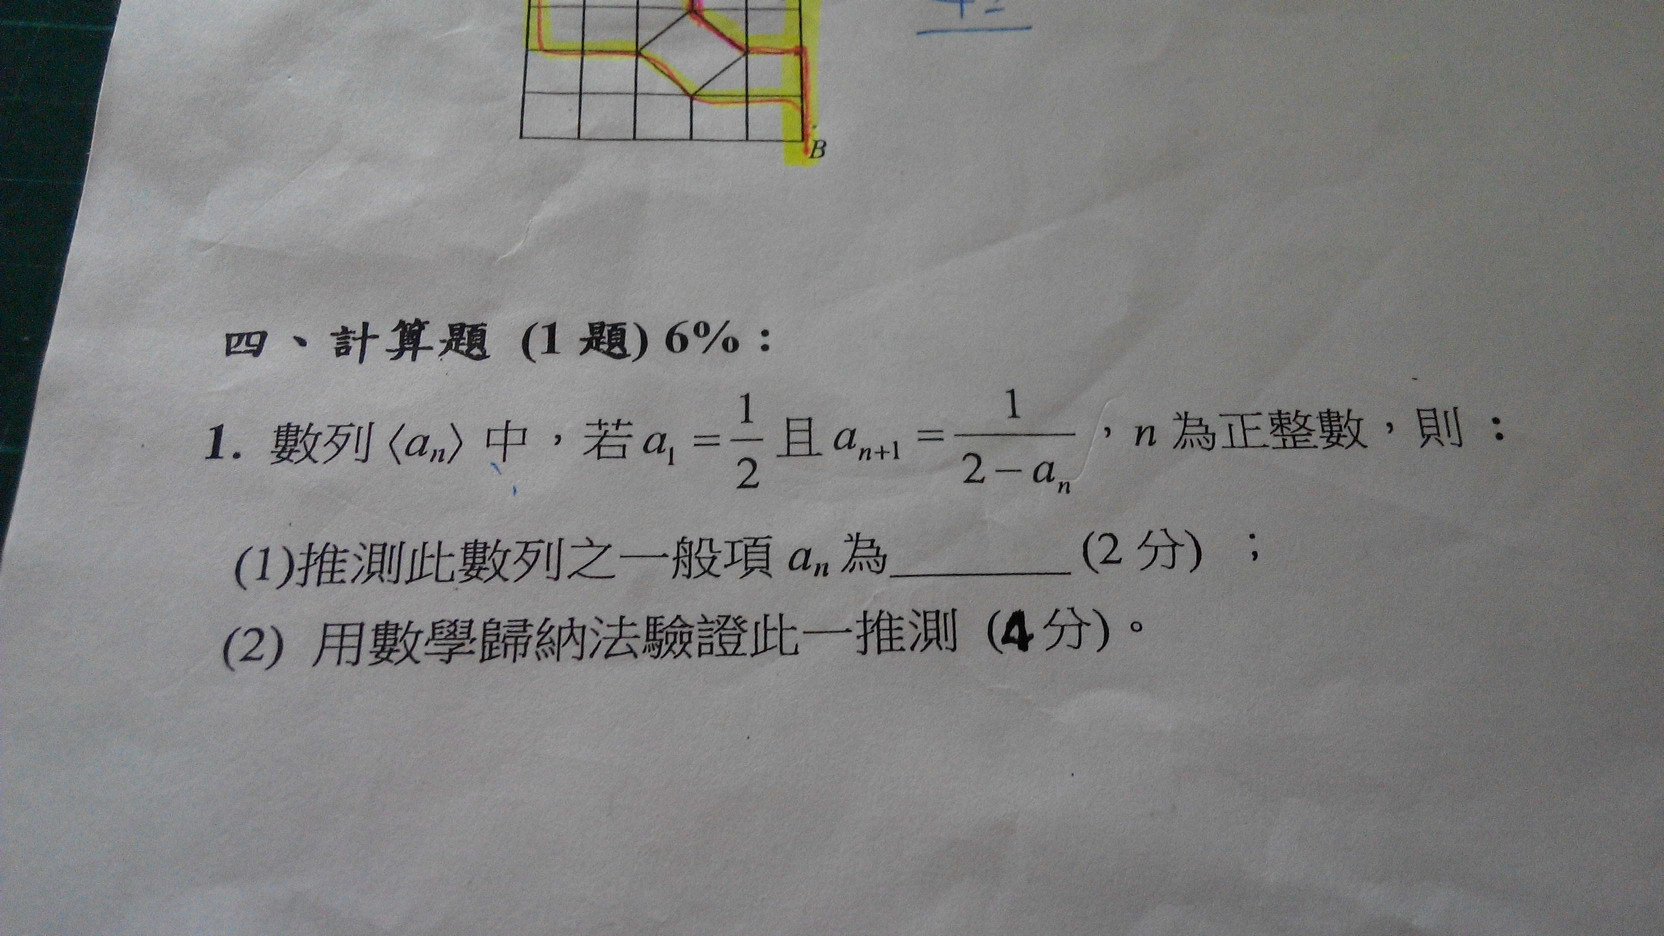 B
四、計算題 (1 題) 6%：
1. 數列 ⟨aₙ⟩ 中，若 a₁ = 1/2 且 aₙ₊₁ = 1/(2 − aₙ)，n 為正整數，則：
(1)推測此數列之一般項 aₙ 為________(2 分) ；
(2) 用數學歸納法驗證此一推測 (4 分)。